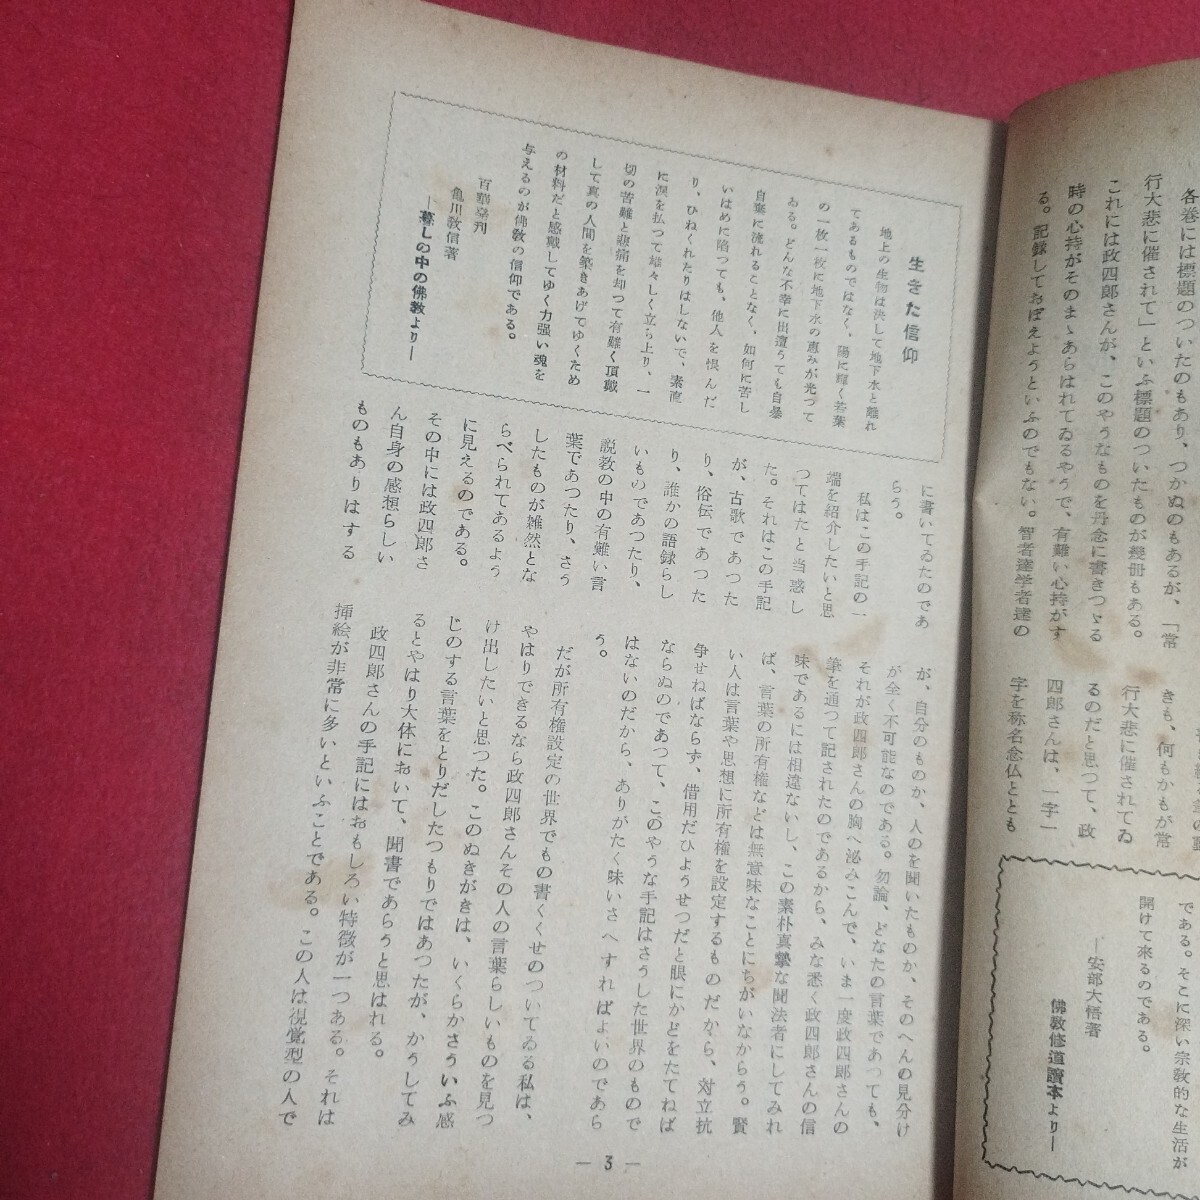 各巻には標題のついたのもあり、つかぬのもあるが、「常
行大悲に催されて」といふ標題のついたものが幾冊もある。
これには政四郎さんが、このやうなものを丹念に書きつゞる
時の心持がそのまゝあらはれてゐるやうで、有難い心持がす
る。記録しておぼえようといふのでもない。智者達学者達の
きも、何もかもが常
行大悲に催されてゐ
るのだと思つて、政
四郎さんは、一字一
字を称名念仏ととも
である。そこに深い宗教的な生活が
開けて来るのである。
―安部大悟著
佛教修道讀本より―
生きた信仰
地上の生物は決して地下水と離れ
てあるものではなく、陽に輝く若葉
の一枚一枚に地下水の恵みが光つて
ゐる。どんな不幸に出遭うても自暴
自棄に流れることなく、如何に苦し
いはめに陥つても、他人を恨んだ
り、ひねくれたりはしないで、素直
に涙を払つて雄々しく立ち上り、一
切の苦難と悲痛を却つて有難く頂戴
して真の人間を築きあげてゆくため
の材料だと感戴してゆく力強い魂を
与えるのが佛教の信仰である。
百華苑刊
亀川教信著
―暮しの中の佛教より―
に書いてるたのであ
らう。
私はこの手記の一
端を紹介したいと思
つてはたと当惑し
た。それはこの手記
が、古歌であつた
り、俗伝であつた
り、誰かの語録らし
いものであつたり、
説教の中の有難い言
葉であつたり、さう
したものが雑然とな
らべられてあるよう
に見えるのである。
その中には政四郎さ
ん自身の感想らしい
ものもありはする
が、自分のものか、人のを聞いたものか、そのへんの見分け
が全く不可能なのである。勿論、どなたの言葉であつても、
それが政四郎さんの胸へ泌みこんで、いま一度政四郎さんの
筆を通つて記されたのであるから、みな悉く政四郎さんの信
味であるには相違ないし、この素朴真摯な聞法者にしてみれ
ば、言葉の所有権などは無意味なことにちがいなからう。賢
い人は言葉や思想に所有権を設定するものだから、対立抗
争せねばならず、借用だひようせつだと眼にかどをたてねば
ならぬのであつて、このやうな手記はさうした世界のもので
はないのだから、ありがたく味いさへすればよいのであら
う。
だが所有権設定の世界でもの書くくせのついてゐる私は、
やはりできるなら政四郎さんその人の言葉らしいものを見つ
け出したいと思つた。このぬきがきは、いくらかさういふ感
じのする言葉をとりだしたつもりではあつたが、かうしてみ
るとやはり大体において、聞書であらうと思はれる。
政四郎さんの手記にはおもしろい特徴が一つある。それは
挿絵が非常に多いといふことである。この人は視覚型の人で
― 3 ―